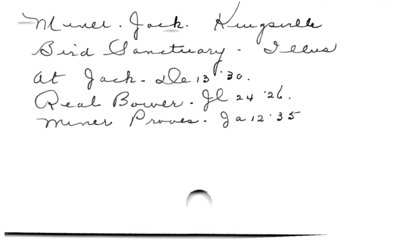 Miner. Jack. Kingsville
Bird Sanctuary. Illus
At Jack. De 13 '30.
Real Bower. Jl 24 '26.
Miner Proves. Ja 12 '35